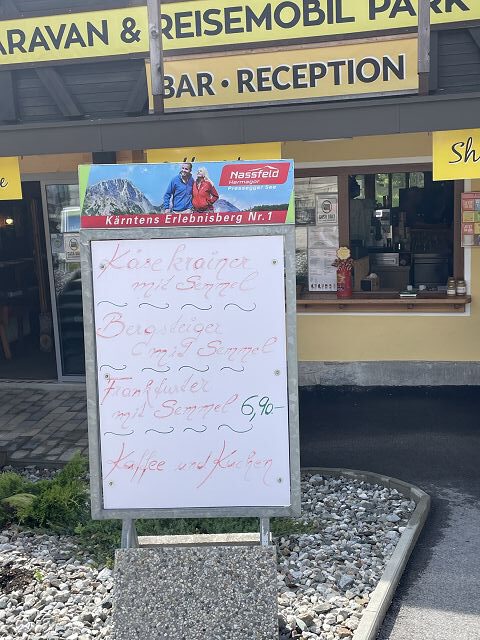 ARAVAN & REISEMOBIL PARK
BAR · RECEPTION
Sh
e
NASSFELD
Hermagor
Pressegger See
Kärntens Erlebnisberg Nr.1
Käsekrainer
mit Semmel
Bergsteiger
mit Semmel
Frankfurter
mit Semmel 6,90-
Kaffee und Kuchen